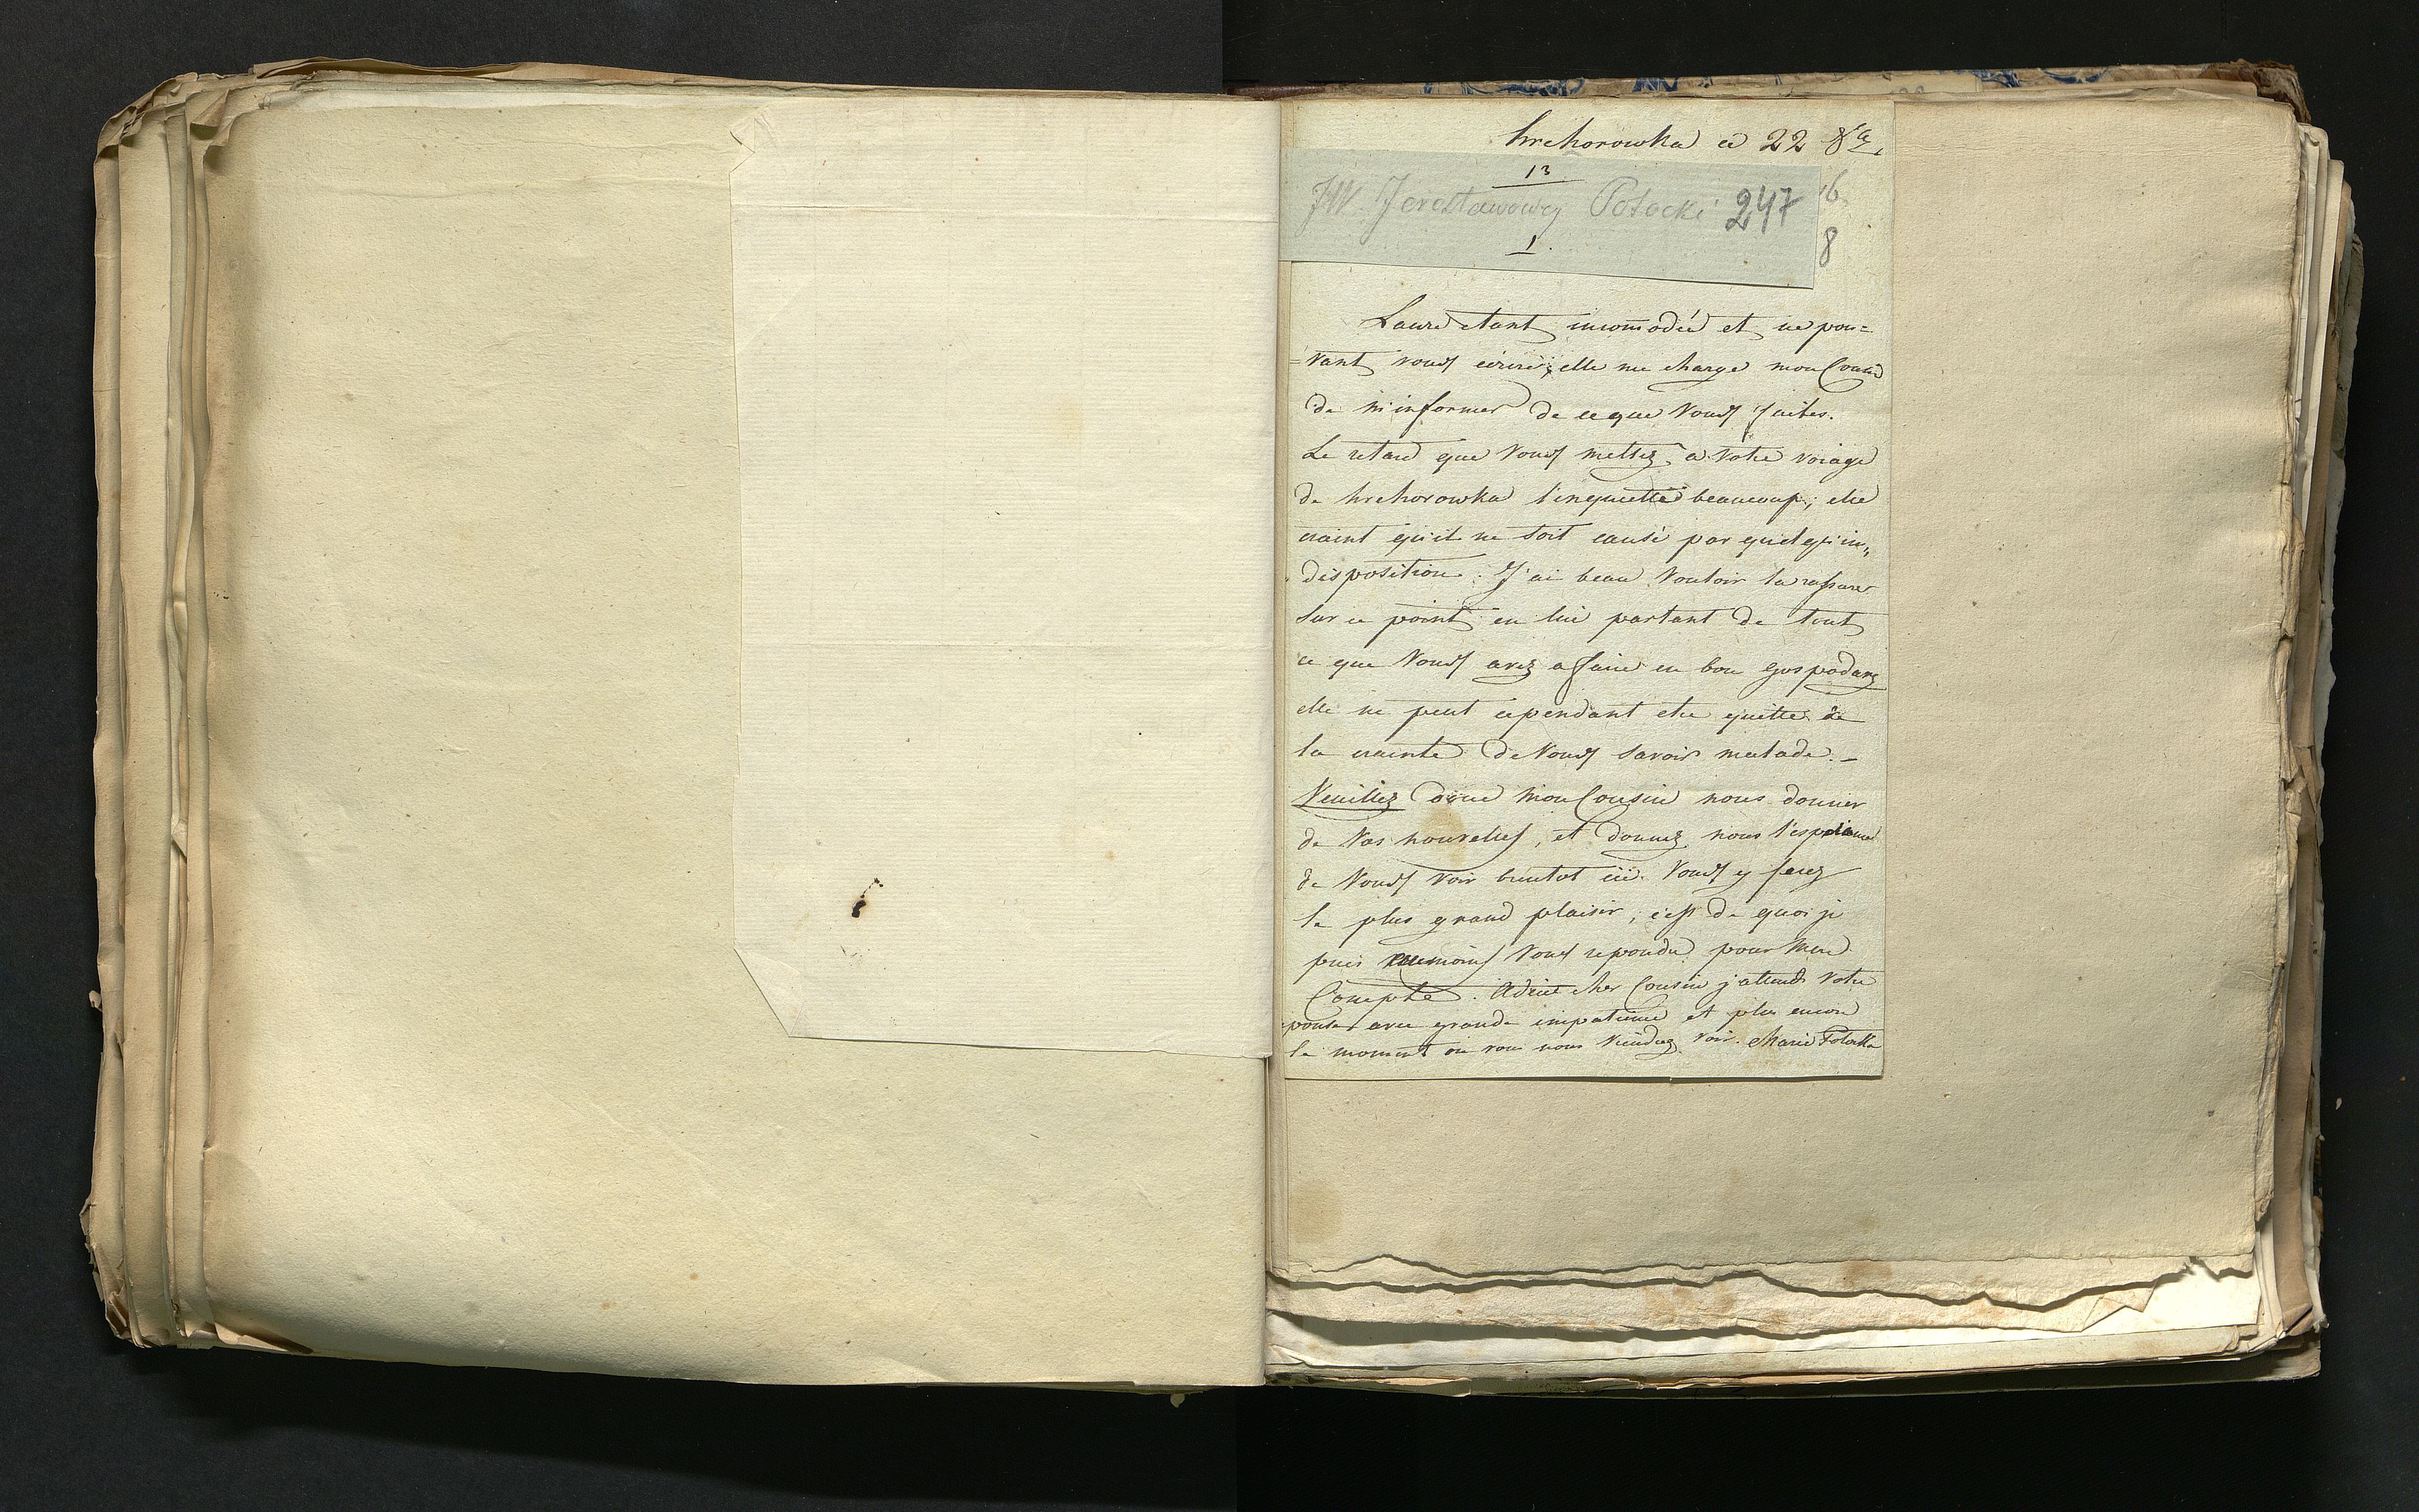 hrehorowka ce 22 8bre
13
JW. Jerosławowey Potocki 247
1.
16
8
Laure etant incomodée et ne pou=
=vant vous ecrire; elle me charge mon Cousin
de m'informer de ce que Vous faites.
Le retard que Vous mettez a Votre voiage
de hrehorowka l'inquiette beaucoup; elle
craint qu'il ne soit causé par quelqu'in„
disposition. J'ai beau Vouloir la rassurer
sur ce point en lui parlant de tout
ce que Vous avez a faire en bon gospodarz
elle ne peut cependant etre quitte de
la crainte de Vous savoir malade. –
Veuillez donc mon Cousin nous donner
de Vos nouvelles, et donnez nous l'esperance
de Vous voir bientot ici. Vous y ferez
le plus grand plaisir, c'est de quoi je
puis aumoins Vous repondre pour mon
Compte. Adieu cher Cousin j'attends Votre
ponse avec grande impatience et plus encore
le moment ou vous nous Viendrez voir. Marie Potocka